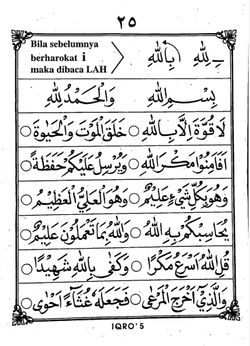 ٢٥
Bila sebelumnya
berharokat i
maka dibaca LAH
ـِ لِلّٰهِ بِاللّٰهِ
بِسْمِ اللّٰهِ وَالْحَمْدُ لِلّٰهِ
لَا قُوَّةَ اِلَّا بِاللّٰهِ ○ خَلَقَ الْمَوْتَ وَالْحَيٰوةَ ○
اَفَاَمِنُوْا مَكْرَ اللّٰهِ ○ وَيُرْسِلُ عَلَيْكُمْ حَفَظَةً ○
وَهُوَ بِكُلِّ شَيْءٍ عَلِيْمٌ ○ وَهُوَ الْعَلِيُّ الْعَظِيْمُ ○
يُحَاسِبْكُمْ بِهِ اللّٰهُ ○ وَاللّٰهُ بِمَا تَعْمَلُوْنَ عَلِيْمٌ ○
قُلِ اللّٰهُ اَسْرَعُ مَكْرًا ○ وَكَفٰى بِاللّٰهِ شَهِيْدًا ○
وَالَّذِيْٓ اَخْرَجَ الْمَرْعٰى ○ فَجَعَلَهٗ غُثَآءً اَحْوٰى ○
IQRO' 5